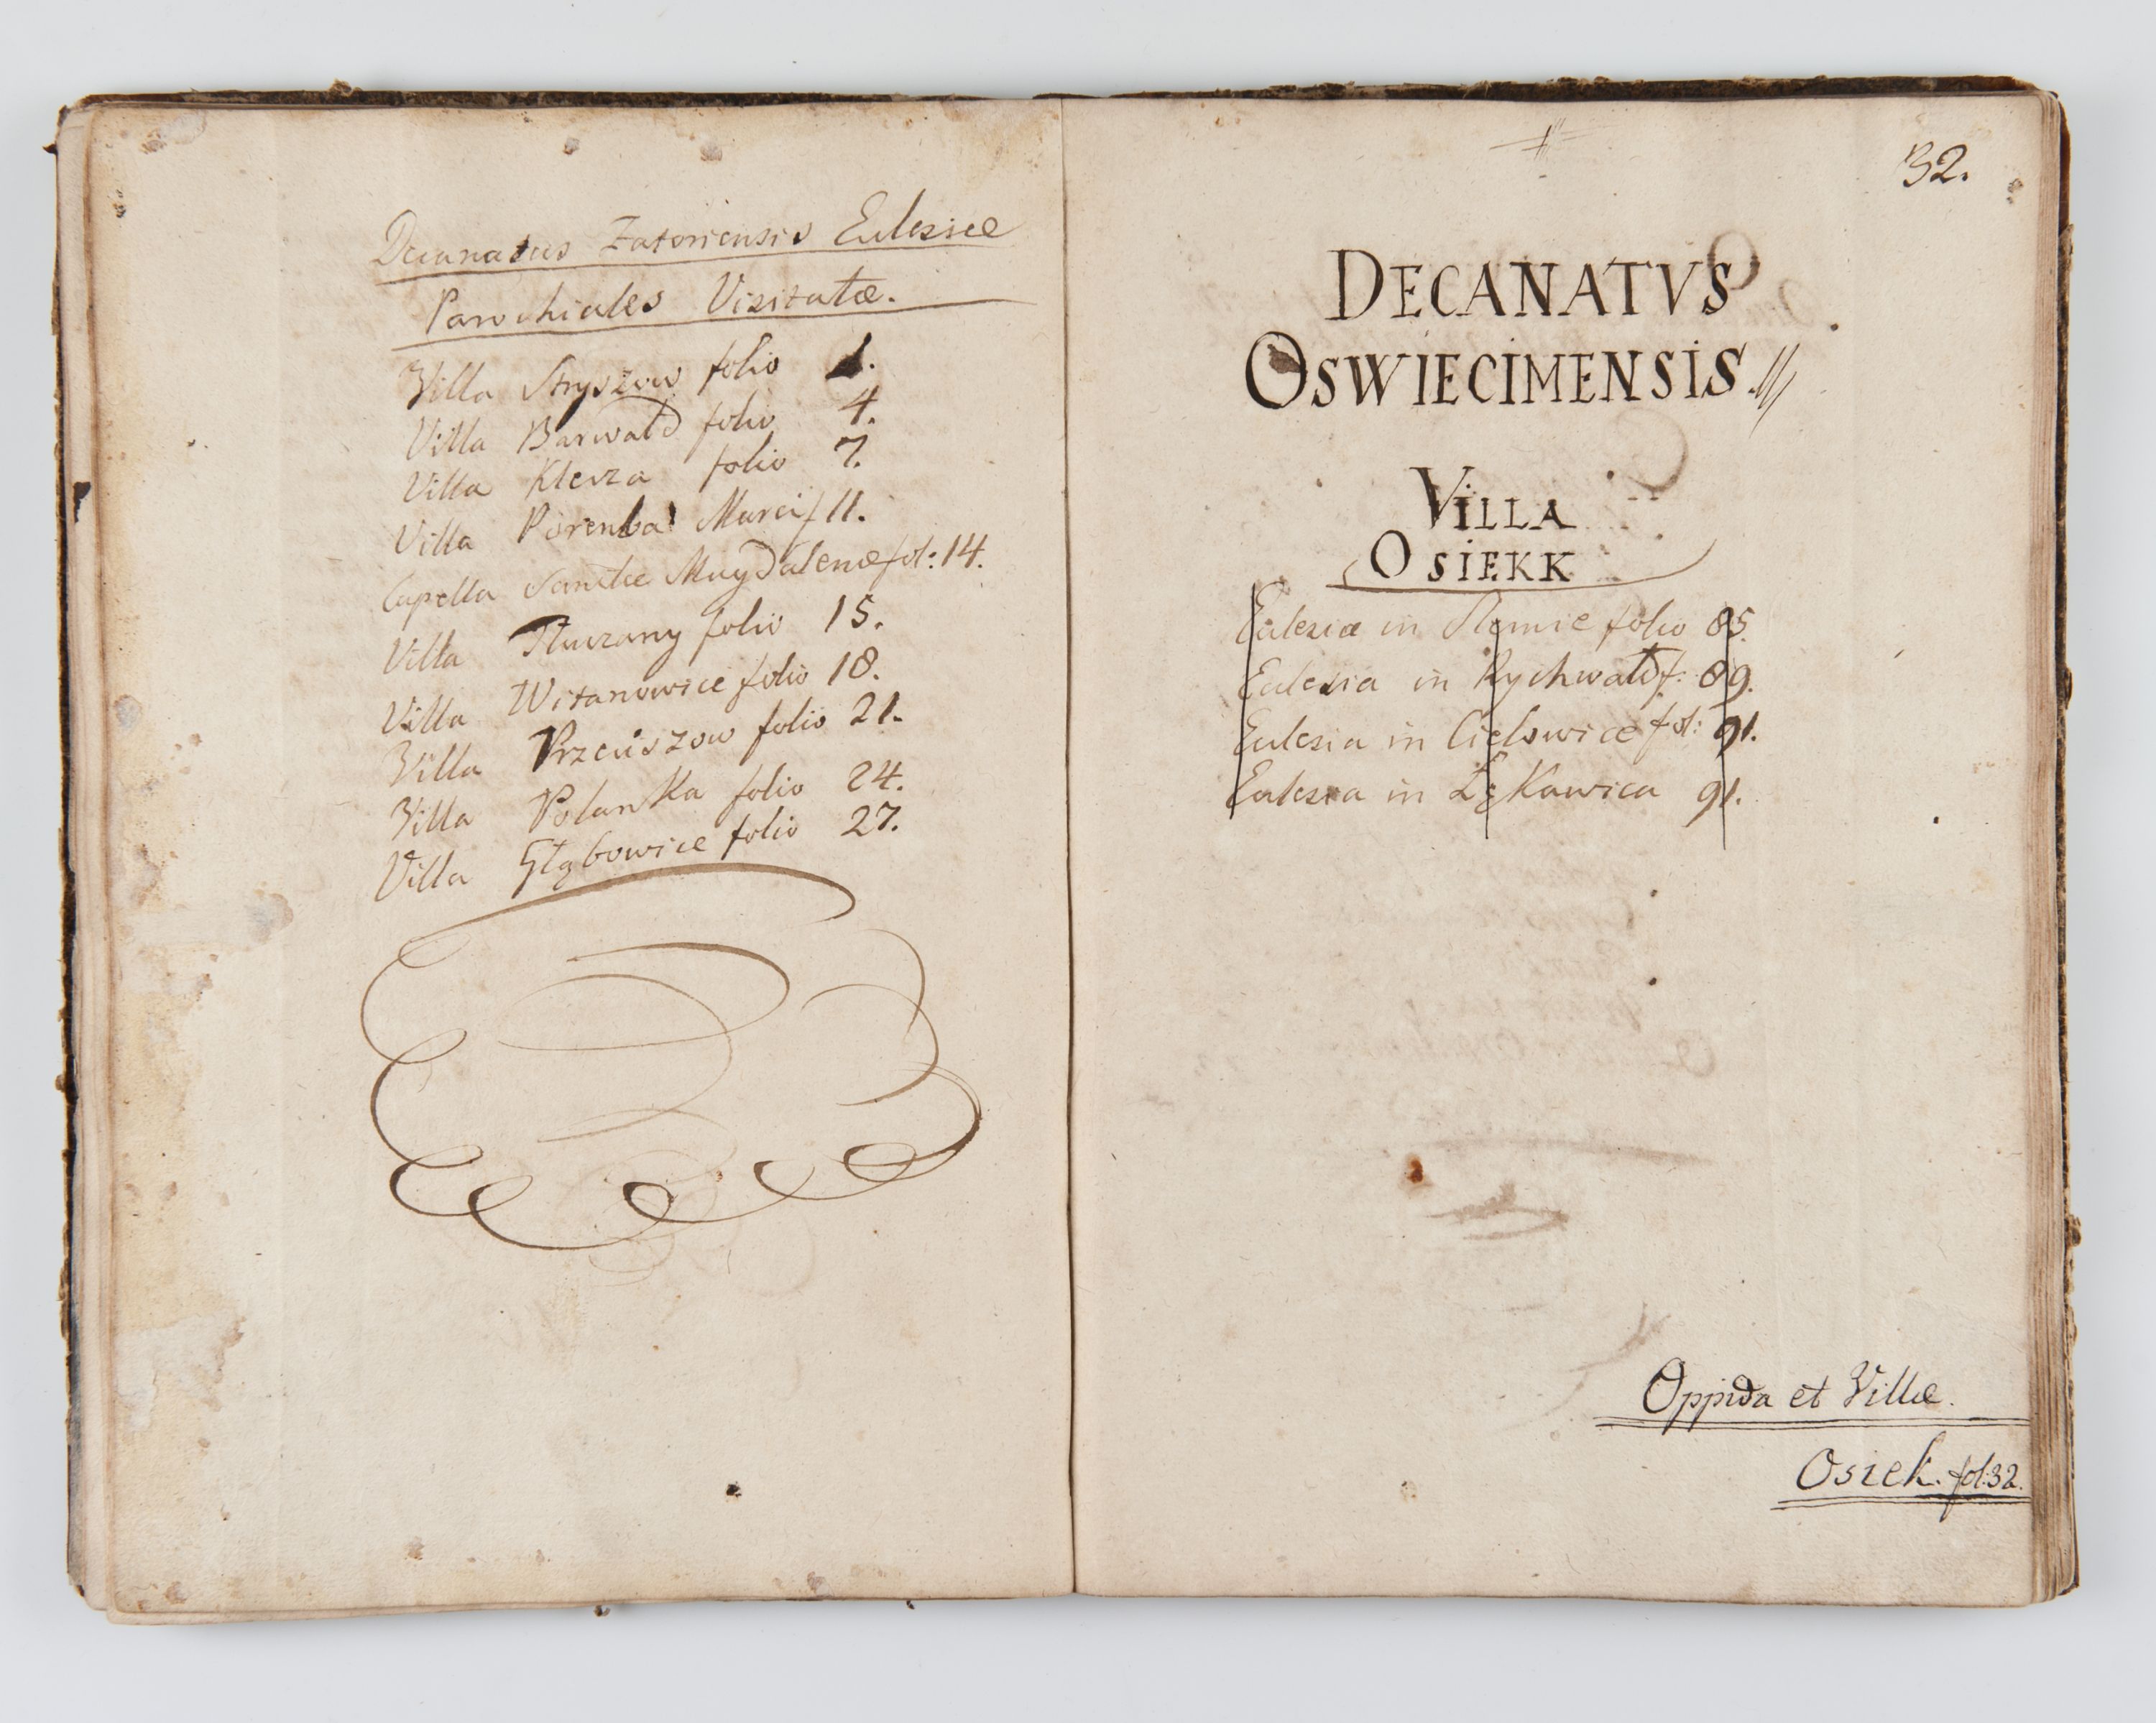 Decanatus Zatoriensis Eclesiæ
Parochiales Visitatæ.
Villa Stryszow folio 1.
Villa Barwald folio 4.
Villa Klecza folio 7.
Villa Porenba Marcif 11.
Capella Sanctæ Magdalenæ fol: 14.
Villa Tluczany folio 15.
Villa Witanowice folio 18.
Villa Przeciszow folio 21.
Villa Polanka folio 24.
Villa Głąbowice folio 27.
32.
DECANATVS
OSWIECIMENSIS
VILLA
OSIEKK
Eclesia in Slemie folio 85.
Eclesia in Rychwald f: 89.
Eclesia in Ciełowice fol: 91.
Eclesia in Lękawica 91.
Oppida et Villæ.
Osiek. fol:32.